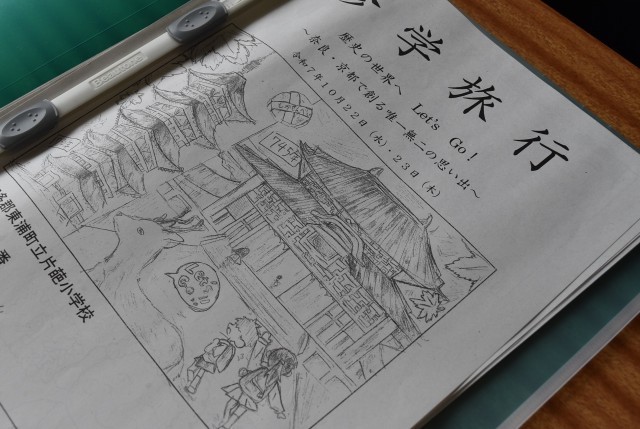 学旅行
歴史の世界へ　Let's Go！
～奈良・京都で創る唯一無二の思い出～
令和７年１０月２２日（水）、２３日（木）
郡東浦町立片葩小学校
Let's
Go!!